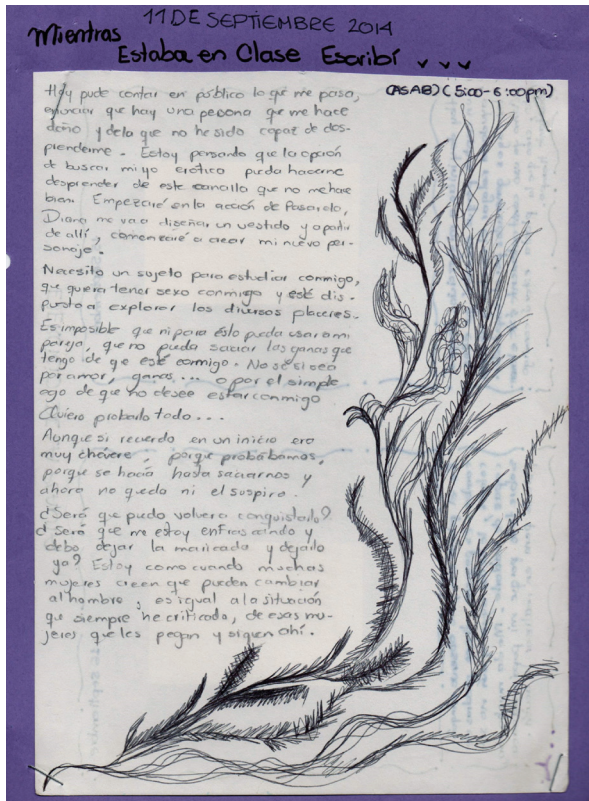 11 DE SEPTIEMBRE 2014
Mientras
Estaba en Clase Escribí ...
(ASAB) (5:00-6:00pm)
Hoy pude contar en público lo que me pasa,
enunciar que hay una persona que me hace
daño y de la que no he sido capaz de des-
prenderme. Estoy pensando que la opción
de buscar mi yo erótico pueda hacerme
desprender de este canalla que no me hace
bien. Empezaré en la acción de Pasarela,
Diana me va a diseñar un vestido y a partir
de allí, comenzaré a crear mi nuevo per-
sonaje.
Necesito un sujeto para estudiar conmigo,
que quiera tener sexo conmigo y esté dis-
puesto a explorar los diversos placeres.
Es imposible que ni para ésto pueda usar a mi
pareja, que no pueda saciar las ganas que
tengo de que esté conmigo. No sé si sea
por amor, ganas... o por el simple
ego de que no desee estar conmigo
Quiero probarlo todo...
Aunque si recuerdo en un inicio era
muy chévere, porque probábamos,
porque se hacía hasta saciarnos y
ahora no queda ni el suspiro.
¿Será que puedo volver a conquistarlo?
¿Será que me estoy enfrascando y
debo dejar la maricada y dejarlo
ya? Estoy como cuando muchas
mujeres creen que pueden cambiar
al hombre, es igual a la situación
que siempre he criticado, de esas mu-
jeres que les pegan y siguen ahí.